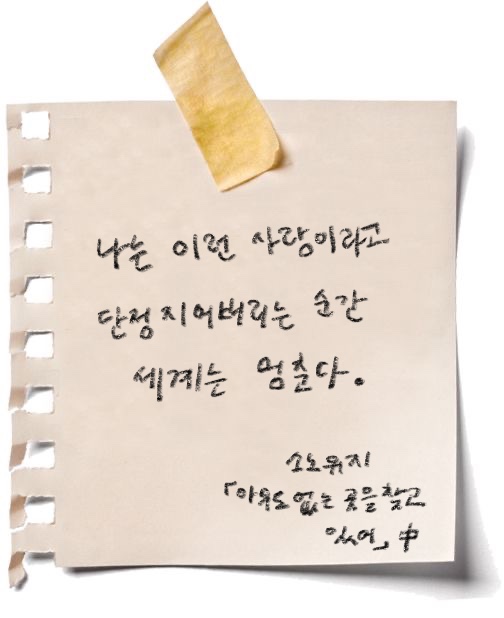 나는 이런 사람이라고
단정 지어버리는 순간
세계는 멈춘다.
소노 유지
「아무도 없는 곳을 찾고
있어」 中